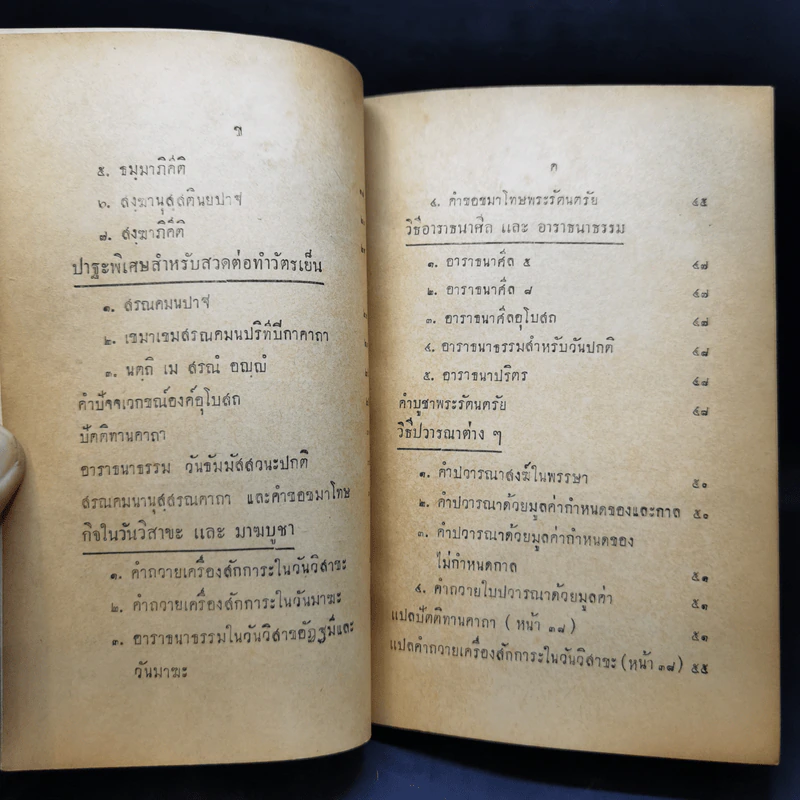 ข
๕. ธมฺมาภิคีติ
๖. สงฺฆานุสฺสตินยปาฐ
๗. สงฺฆาภิคีติ
ปาฐะพิเศษสำหรับสวดต่อทำวัตรเย็น
๑. สรณคมนปาฐ
๒. เขมาเขมสรณคมนปริทีปิกาคาถา
๓. นตฺถิ เม สรณํ อญฺญํ
คำปัจจเวกขณ์องค์อุโบสถ
ปัตติทานคาถา
อาราธนาธรรม วันธัมมัสสวนะปกติ
สรณคมนานุสฺสรณคาถา และคำขอขมาโทษ
กิจในวันวิสาขะ และ มาฆบูชา
๑. คำถวายเครื่องสักการะในวันวิสาขะ
๒. คำถวายเครื่องสักการะในวันมาฆะ
๓. อาราธนาธรรมในวันวิสาขอัฏฐมีและ
วันมาฆะ
ค
๔. คำขอขมาโทษพระรัตนตรัย ๔๕
วิธีอาราธนาศีล และ อาราธนาธรรม
๑. อาราธนาศีล ๕ ๔๗
๒. อาราธนาศีล ๘ ๔๗
๓. อาราธนาศีลอุโบสถ ๔๘
๔. อาราธนาธรรมสำหรับวันปกติ ๔๘
๕. อาราธนาปริตร ๔๘
คำบูชาพระรัตนตรัย ๔๘
วิธีปวารณาต่าง ๆ
๑. คำปวารณาสงฆ์ในพรรษา ๕๐
๒. คำปวารณาด้วยมูลค่ากำหนดของและกาล ๕๐
๓. คำปวารณาด้วยมูลค่ากำหนดของ
ไม่กำหนดกาล ๕๑
๔. คำถวายใบปวารณาด้วยมูลค่า ๕๑
แปลปัตติทานคาถา (หน้า ๓๘) ๕๑
แปลคำถวายเครื่องสักการะในวันวิสาขะ (หน้า ๓๘) ๕๕